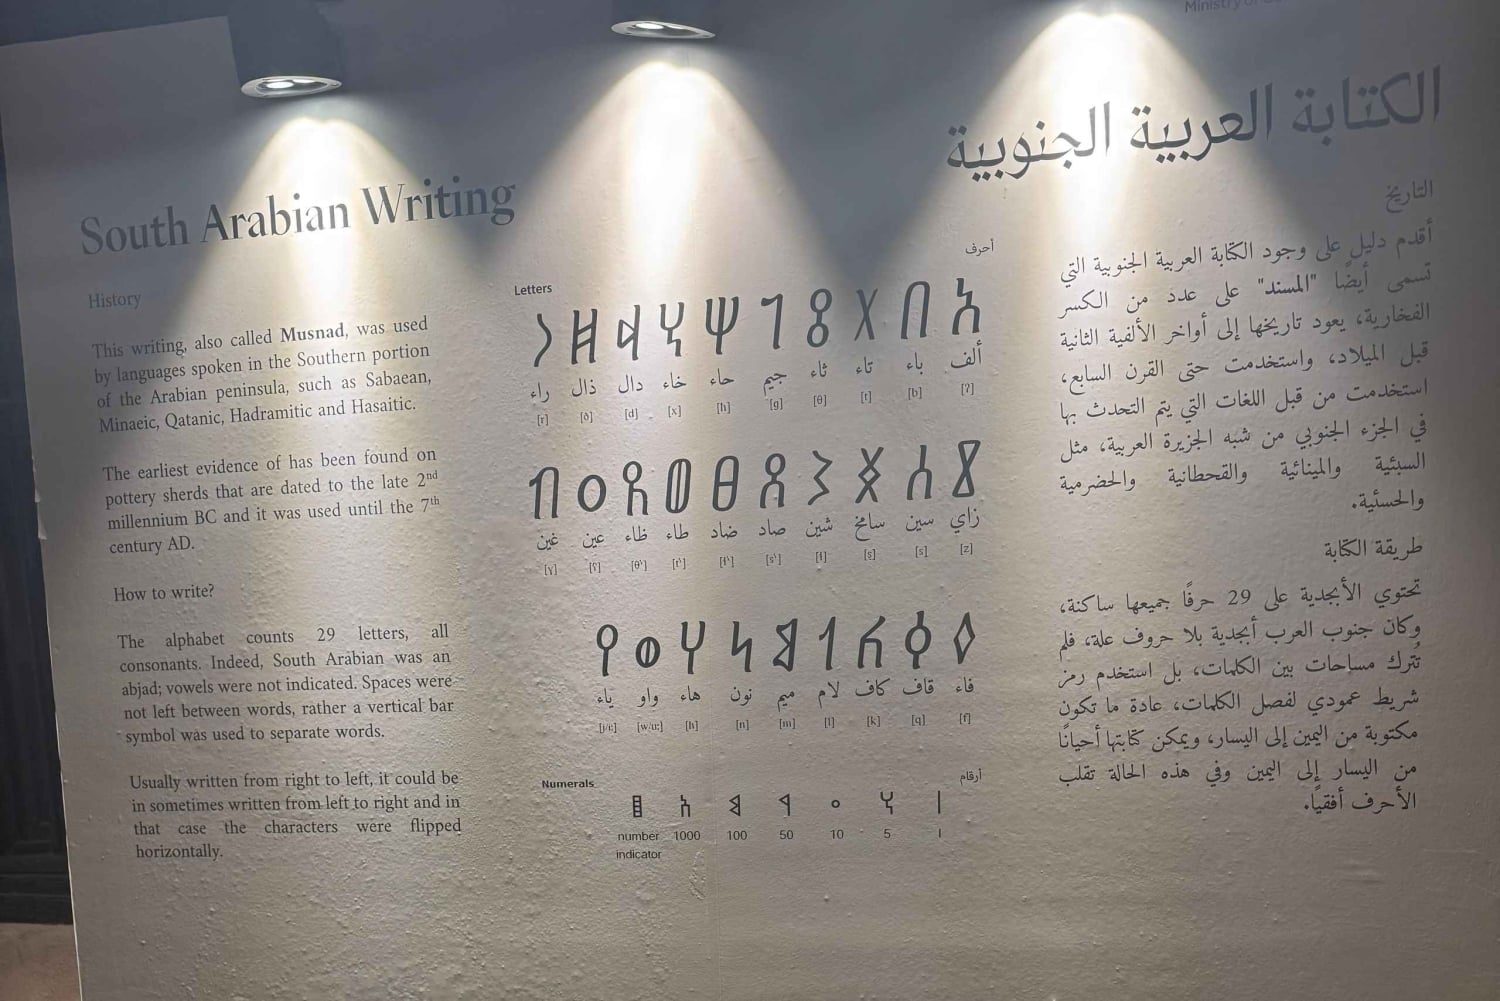 South Arabian Writing
History
This writing, also called Musnad, was used
by languages spoken in the Southern portion
of the Arabian peninsula, such as Sabaean,
Minaeic, Qatanic, Hadramitic and Hasaitic.
The earliest evidence of has been found on
pottery sherds that are dated to the late 2nd
millennium BC and it was used until the 7th
century AD.
How to write?
The alphabet counts 29 letters, all
consonants. Indeed, South Arabian was an
abjad; vowels were not indicated. Spaces were
not left between words, rather a vertical bar
symbol was used to separate words.
Usually written from right to left, it could be
in sometimes written from left to right and in
that case the characters were flipped
horizontally.
Letters
أحرف
𐩱 𐩨 𐩩 𐩻 𐩴 𐩢 𐩭 𐩵 𐩹 𐩧
ألف باء تاء ثاء جيم حاء خاء دال ذال راء
[ʔ] [b] [t] [θ] [g] [h] [x] [d] [ð] [r]
𐩸 𐩪 𐩯 𐩦 𐩮 𐩳 𐩷 𐩼 𐩲 𐩶
زاي سين سامخ شين صاد ضاد طاء ظاء عين غين
[z] [s] [ɬ] [sˤ] [tˤ] [θˤ] [ʕ] [ɣ]
𐩰 𐩤 𐩫 𐩡 𐩣 𐩬 𐩠 𐩥 𐩺
فاء قاف كاف لام ميم نون هاء واو ياء
[f] [q] [k] [l] [m] [n] [h]
Numerals
أرقام
number 1000 100 50 10 5 1
indicator
Ministry of
الكتابة العربية الجنوبية
التاريخ
أقدم دليل على وجود الكتابة العربية الجنوبية التي
تسمى أيضًا "المسند" على عدد من الكسر
الفخارية، يعود تاريخها إلى أواخر الألفية الثانية
قبل الميلاد، واستخدمت حتى القرن السابع،
استخدمت من قبل اللغات التي يتم التحدث بها
في الجزء الجنوبي من شبه الجزيرة العربية، مثل
السبئية والمينائية والقحطانية والحضرمية
والحسئية.
طريقة الكتابة
تحتوي الأبجدية على 29 حرفًا جميعها ساكنة،
وكان جنوب العرب أبجدية بلا حروف علة، فلم
تُترك مساحات بين الكلمات، بل استخدم رمز
شريط عمودي لفصل الكلمات، عادة ما تكون
مكتوبة من اليمين إلى اليسار، ويمكن كتابتها أحيانًا
من اليسار إلى اليمين وفي هذه الحالة تقلب
الأحرف أفقيًا.